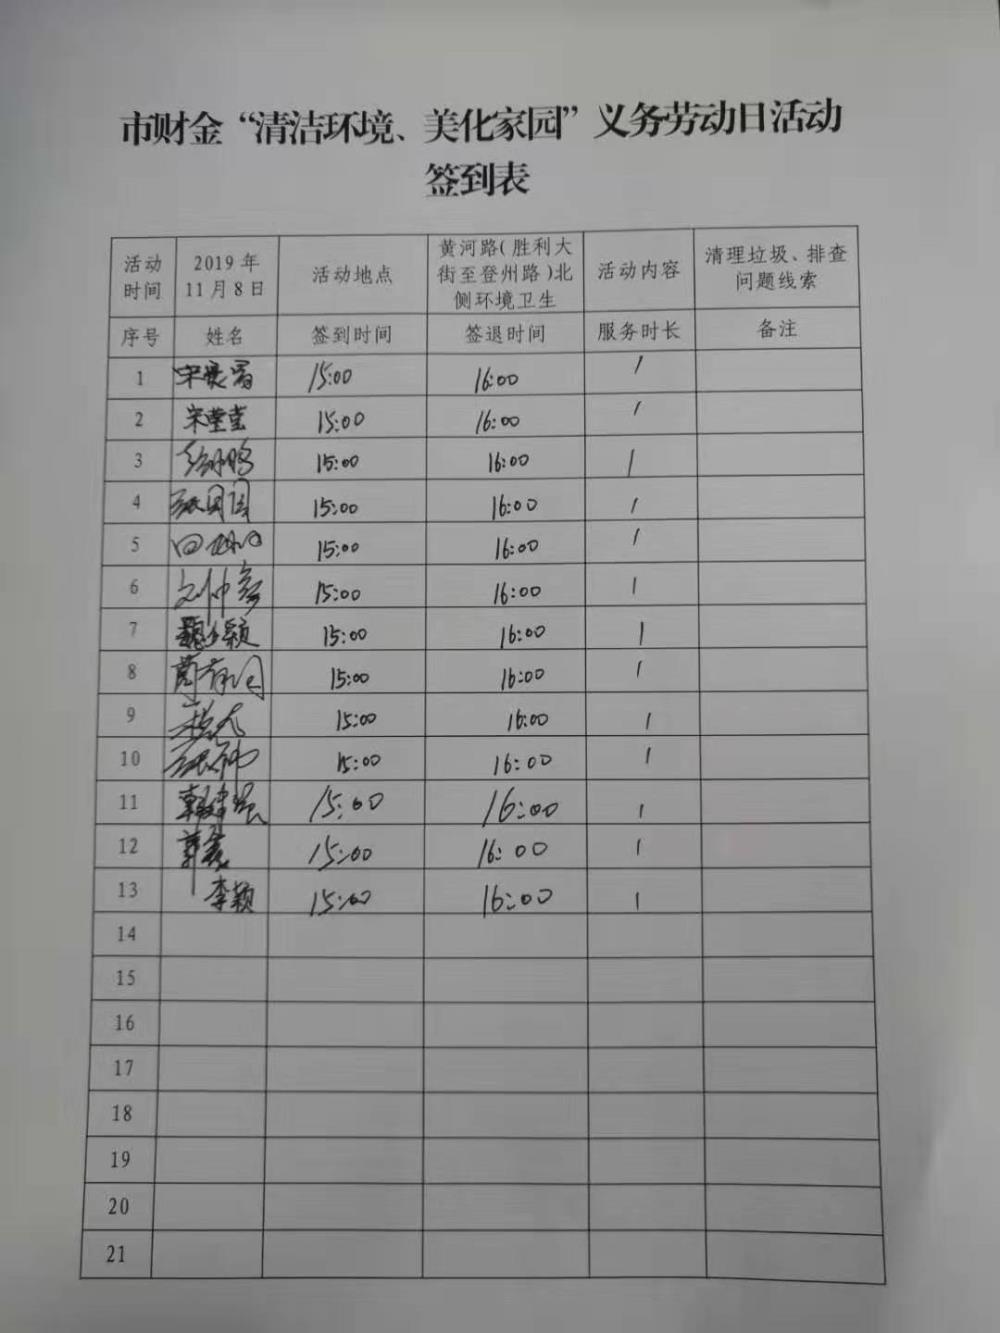 市财金“清洁环境、美化家园”义务劳动日活动
签到表
活动时间 2019年11月8日 活动地点 黄河路(胜利大街至登州路)北侧环境卫生 活动内容 清理垃圾、排查问题线索
序号 姓名 签到时间 签退时间 服务时长 备注
1 15:00 16:00 1
2 宋莹莹 15:00 16:00 1
3 15:00 16:00 1
4 15:00 16:00 1
5 15:00 16:00 1
6 15:00 16:00 1
7 15:00 16:00 1
8 15:00 16:00 1
9 15:00 16:00 1
10 15:00 16:00 1
11 15:00 16:00 1
12 15:00 16:00 1
13 李颖 15:00 16:00 1
14
15
16
17
18
19
20
21